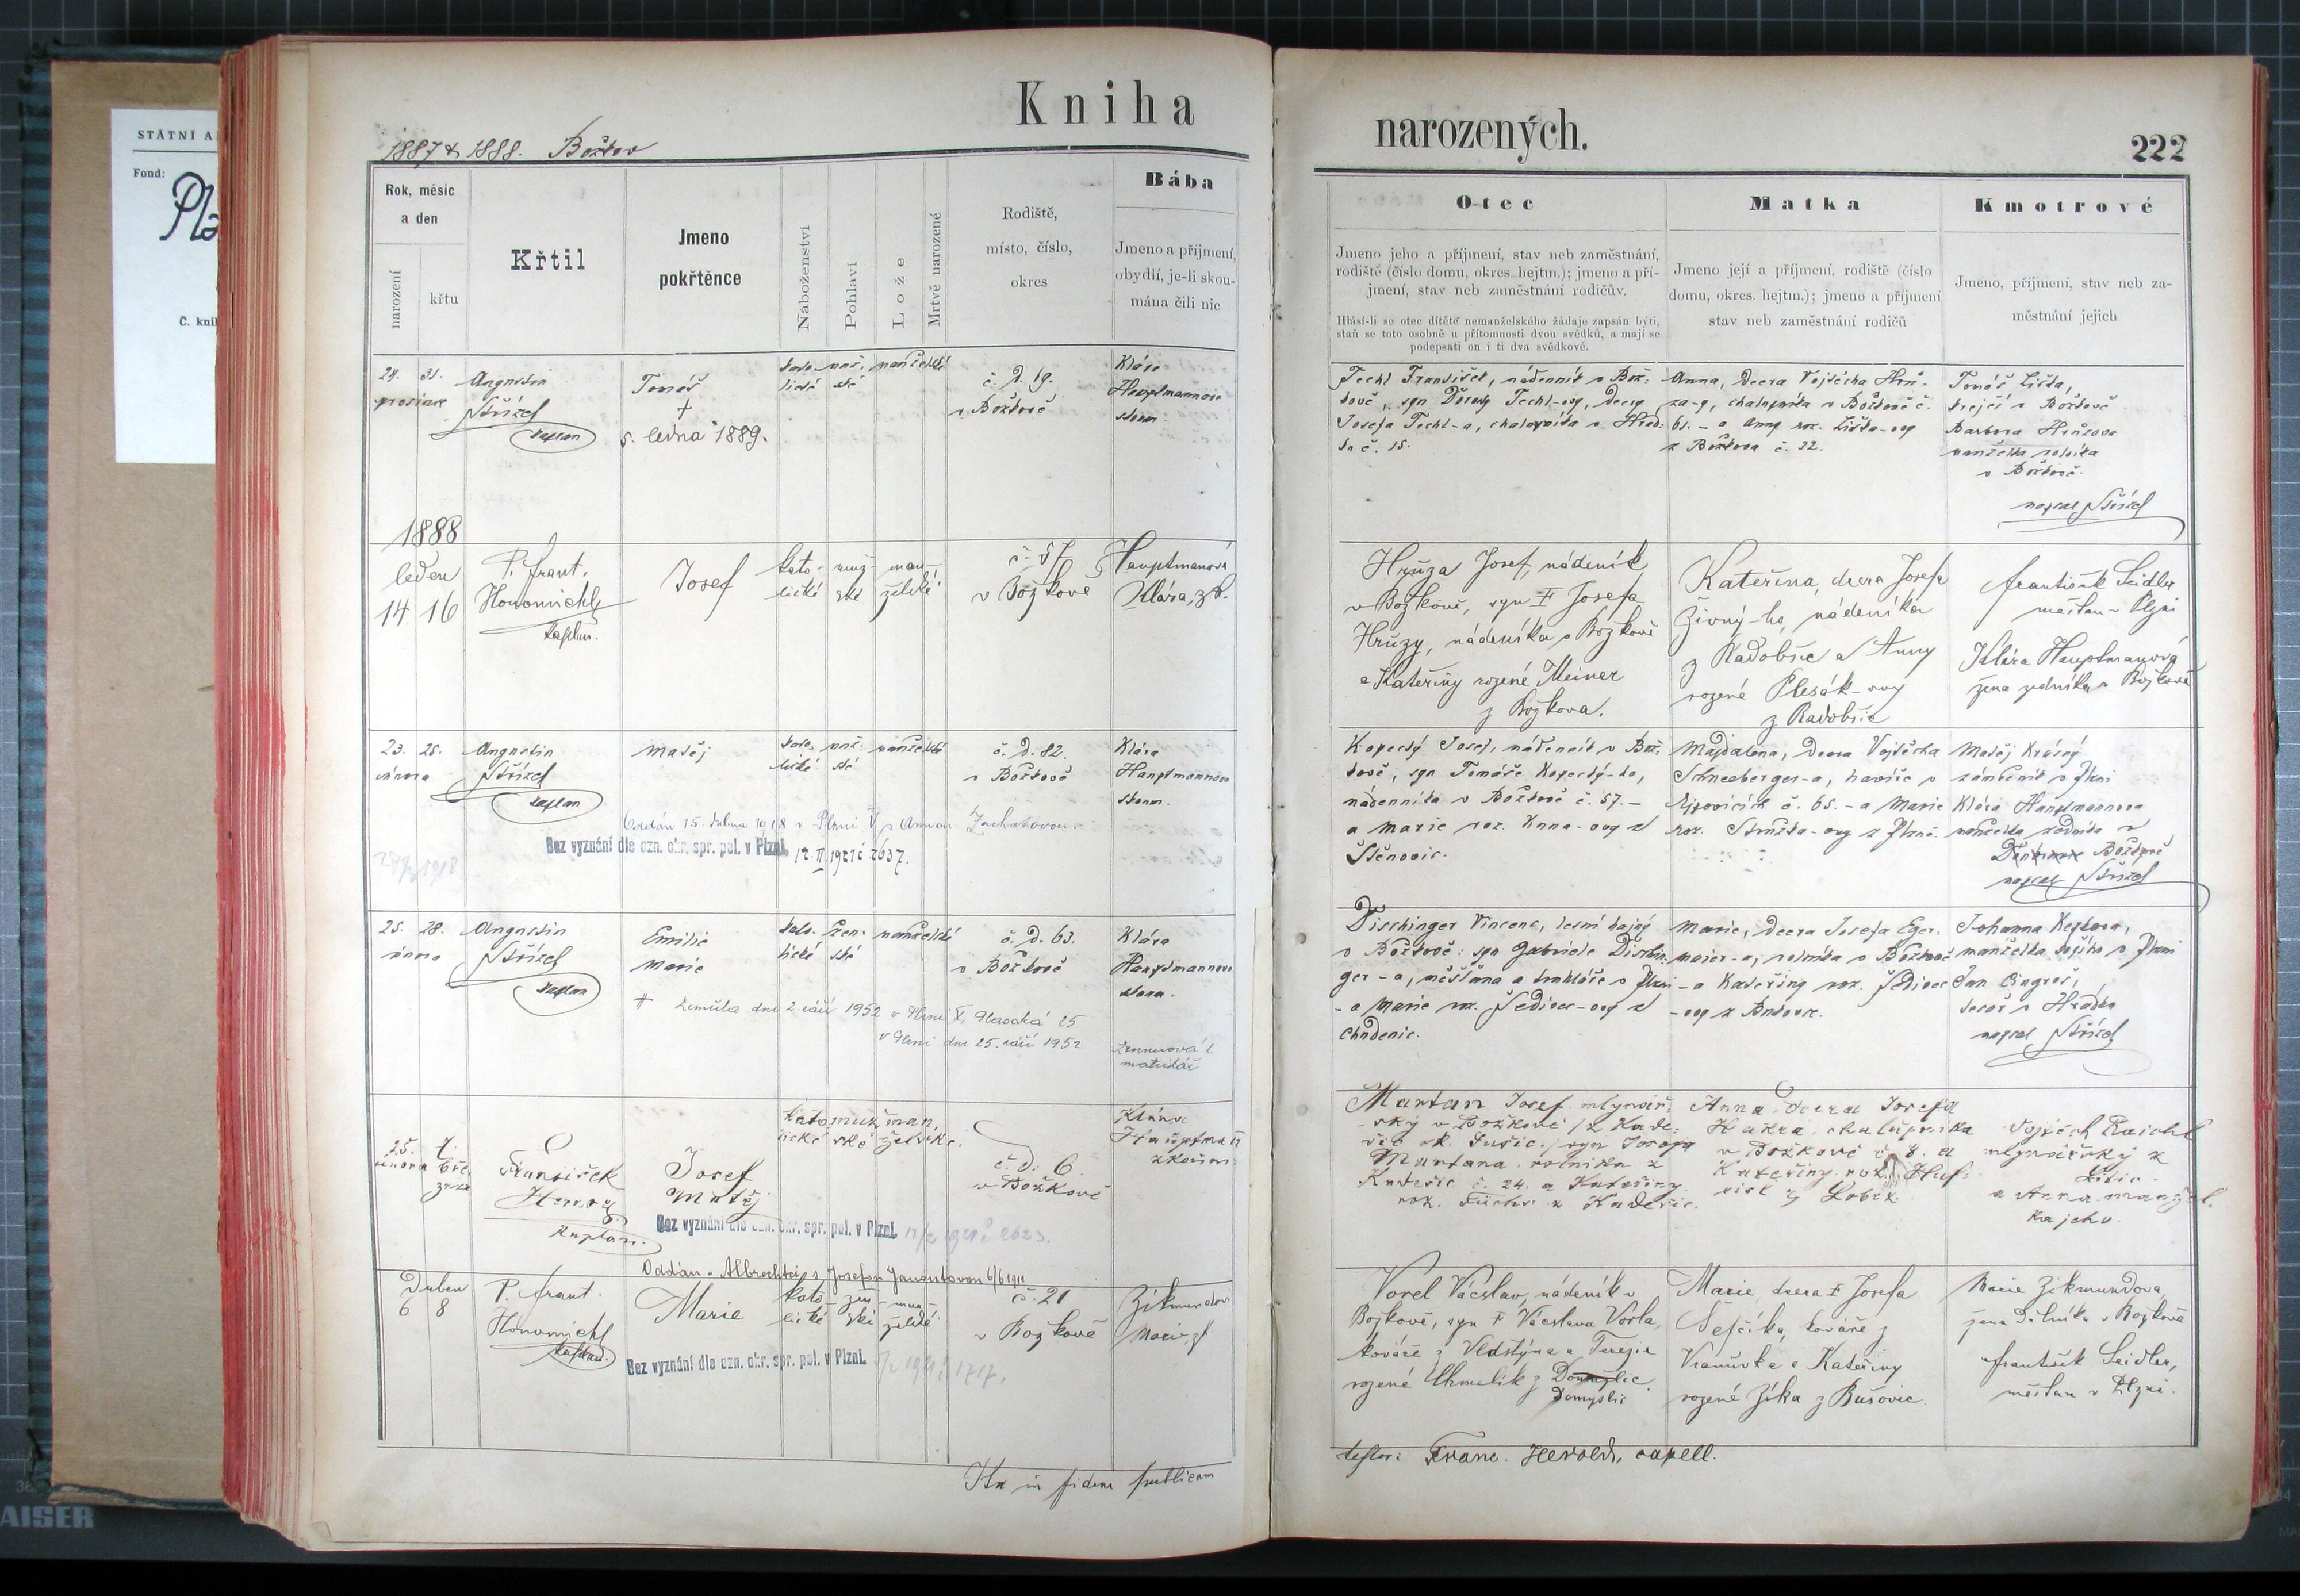 STÁTNÍ A
Fond:
Č. kni
Kniha
1887 & 1888. Božkov
Rok, měsíc
a den
narození
křtu
Křtil
Jmeno
pokřtěnce
Náboženství
Pohlaví
Lože
Mrtvě narozené
Rodiště,
místo, číslo,
okres
Bába
Jmeno a příjmení,
obydlí, je-li skou-
mána čili nic
29. 31.
prosince
Augustin
Střízek
kaplan
Tomáš
†
5. ledna 1889.
kato- muž- manželské
lické ské
č. d. 19.
v Božkově
Klára
Hauptmannova
zkoum.
1888
leden
14 16
P. Frant.
Honomichl
kaplan.
Josef
kato- muž- man-
lické ské želské
č. 57
v Božkově
Hauptmanová
Klára, zk.
23. 25.
února
Augustin
Střízek
kaplan
Matěj
kato- muž- manželské
lické ské
č. d. 82.
v Božkově
Klára
Hauptmannova
zkoum.
Oddán 15. dubna 1918 v Plzni s Annou
Bez vyznání dle ozn. okr. spr. pol. v Plzni. 12. II. 1921 č 2637.
25. 28.
února
Augustin
Střízek
kaplan
Emilie
Marie
kato- žen- manželské
lické ské
č. d. 63.
v Božkově
Klára
Hauptmannova
zkoum.
† Zemřela dne 2. září 1952 v Plzni X, Plaocká 25
V Plzni dne 25. září 1952
matrikář
25. 1.
února břez
na
František
Herold
kaplan.
Josef
Matěj
kato muž man
lické ské želské.
č. d. 6.
v Božkově
Klára
zkoum.
Bez vyznání dle ozn. okr. spr. pol. v Plzni. 12/2 1921 č 2623.
6/6 1911
Duben
6 8
P. Frant.
Honomichl
kaplan.
Marie
kato- žen- man-
lické ské želské
č. 21
v Božkově
Zikmundova
Marie, zk
Bez vyznání dle ozn. okr. spr. pol. v Plzni. 1921 č. 1717.
Ita in fidem publicam
narozených.
222
Otec
Jmeno jeho a příjmení, stav neb zaměstnání,
rodiště (číslo domu, okres. hejtm.); jmeno a pří-
jmení, stav neb zaměstnání rodičův.
Hlásí-li se otec dítěte nemanželského žádaje zapsán býti,
staň se toto osobně u přítomnosti dvou svědků, a mají se
podepsati on i ti dva svědkové.
Matka
Jmeno její a příjmení, rodiště (číslo
domu, okres. hejtm.); jmeno a příjmení
stav neb zaměstnání rodičů
Kmotrové
Jmeno, příjmení, stav neb za-
městnání jejich
Techl František, nádenník v Bož-
kově, syn Dorothy Techl-ovy, dcery
Josefa Techl-a, chalupníka v Hrád-
ku č. 15.
Anna, dcera Vojtěcha Hrů-
za-y, chalupníka v Božkově č.
61. - a Anny roz. Liška-ovy
z Božkova č. 32.
Tomáš Liška,
krejčí v Božkově
Barbora Hrůzova
manželka rolníka
v Božkově.
napsal Střízek
Hrůza Josef, nádeník
v Božkově, syn † Josefa
Hrůzy, nádeníka v Božkově
a Kateřiny rozené Meiner
z Božkova.
Kateřina, dcera Josefa
Živný-ho, nádeníka
z Radobčic a Anny
rozené Plesák-ovy
z Radobčic
František Seidler
měšťan v Plzni
Klára Hauptmanová
žena zedníka v Božkově
Kopecký Josef, nádenník v Bož-
kově, syn Tomáše Kopecký-ho,
nádenníka v Božkově č. 57. -
a Marie roz. Unna-ovy z
Štěnovic.
Majdalena, dcera Vojtěcha
Schneeberger-a, havíře v
Ejpovicích č. 65. - a Marie
roz. Stružka-ovy z Plzně.
Matěj Krásný
zámečník v Plzni
Klára Hauptmannova
manželka zedníka v
Božkově
napsal Střízek
Dischinger Vincenc, lesní hajný
v Božkově: syn Gabriele Dischin-
ger-a, měšťana a truhláře v Plzni
- a Marie roz. Šedivec-ovy z
Chudenic.
Marie, dcera Josefa Eger-
maier-a, rolníka v Božkově
- a Kateřiny roz. Šedivec
-ovy z
Johanna
manželka v Plzni
Jan Cingroš,
tesař v Hrádku
napsal Střízek
Martan Josef mlynář-
ský v Božkově (z Kade-
šic ok. Sušic.) syn Josefa
Martana, rolníka z
Kadešic č. 24. a Kateřiny
roz. Fuchs z Kadešic.
Anna dcera Josefa
Hakra, chalupníka
v Božkově č. 8. a
Kateřiny roz. Huf-
z Lobez
Vojtěch Raichl
mlynářský z
Litic
a Anna manžel.
ka jeho.
Vorel Václav, nádeník v
Božkově, syn † Václava Vorla,
kováře z a Terezie
rozené Chmelík z
Domyslic
Marie, dcera † Josefa
Šefčíka, kováře z
a Kateřiny
rozené Zíka z Bušovic.
Marie Zikmundova,
žena dělníka v Božkově
František Seidler,
měšťan v Plzni.
testor: Franc. Herold, capell.